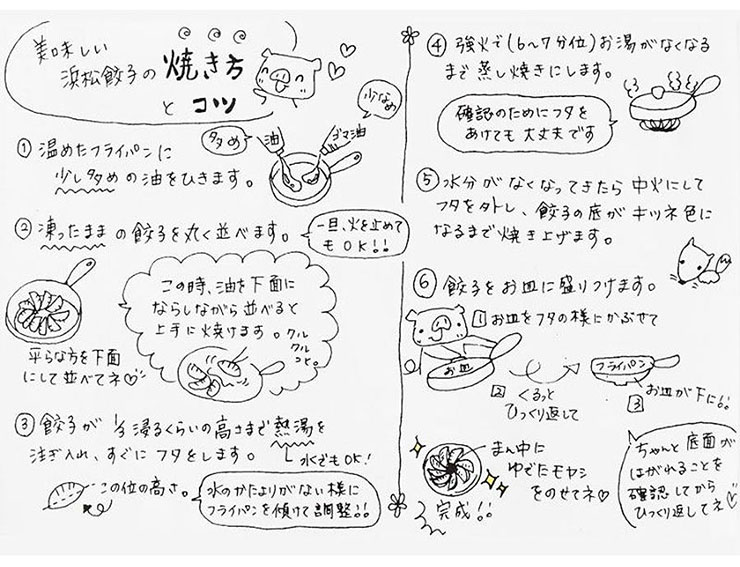 美味しい
浜松餃子の焼き方
とコツ
① 温めたフライパンに
少し多めの油をひきます。
多め
油
ゴマ油
少なめ
② 凍ったままの餃子を丸く並べます。
一旦、火を止めて
もOK!!
平らな方を下面
にして並べてネ♡
この時、油を下面に
ならしながら並べると
上手に焼けます。
クル
クル
③ 餃子が 1/3 浸るくらいの高さまで熱湯を
注ぎ入れ、すぐにフタをします。
水でもOK!
この位の高さ。
水のかたよりがない様に
フライパンを傾けて調整!!
④ 強火で(6~7分位)お湯がなくなる
まで蒸し焼きにします。
確認のためにフタを
あけても大丈夫です
⑤ 水分がなくなってきたら中火にして
フタを外し、餃子の底がキツネ色に
なるまで焼き上げます。
⑥ 餃子をお皿に盛りつけます。
1 お皿をフタの様にかぶせて
お皿
2 くるっと
ひっくり返して
フライパン
3 お皿が下に!!
まん中に
ゆでたモヤシ
をのせてネ♡
完成!!
ちゃんと底面が
はがれることを
確認してから
ひっくり返してネ♡